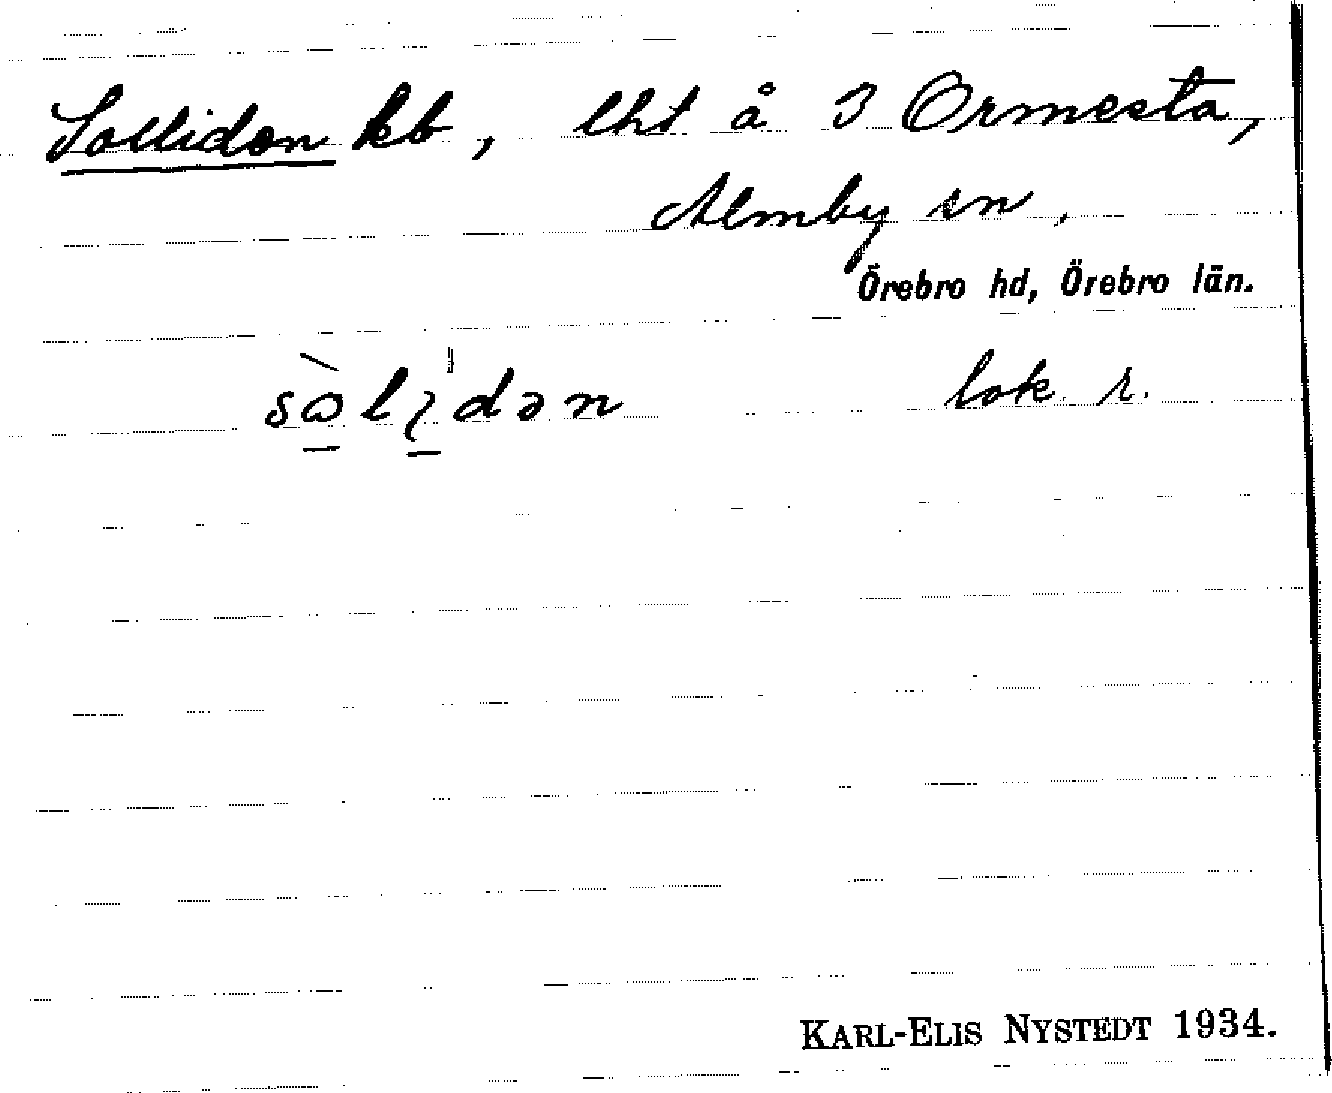 Sollidon kb, lht å 3 Ormesta,
Almby sn,
Örebro hd, Örebro län.
sɷ̀lı̍dən lok. r.
KARL-ELIS NYSTEDT 1934.